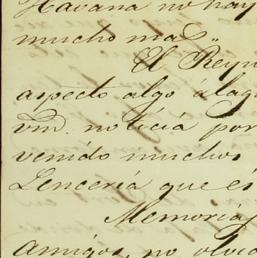 Havana no hay
mucho mas„
El Reyn
aspecto algo alag
vm. noticia por
venido muchos
Lenceria que és
Memorias
amigos, no olvid